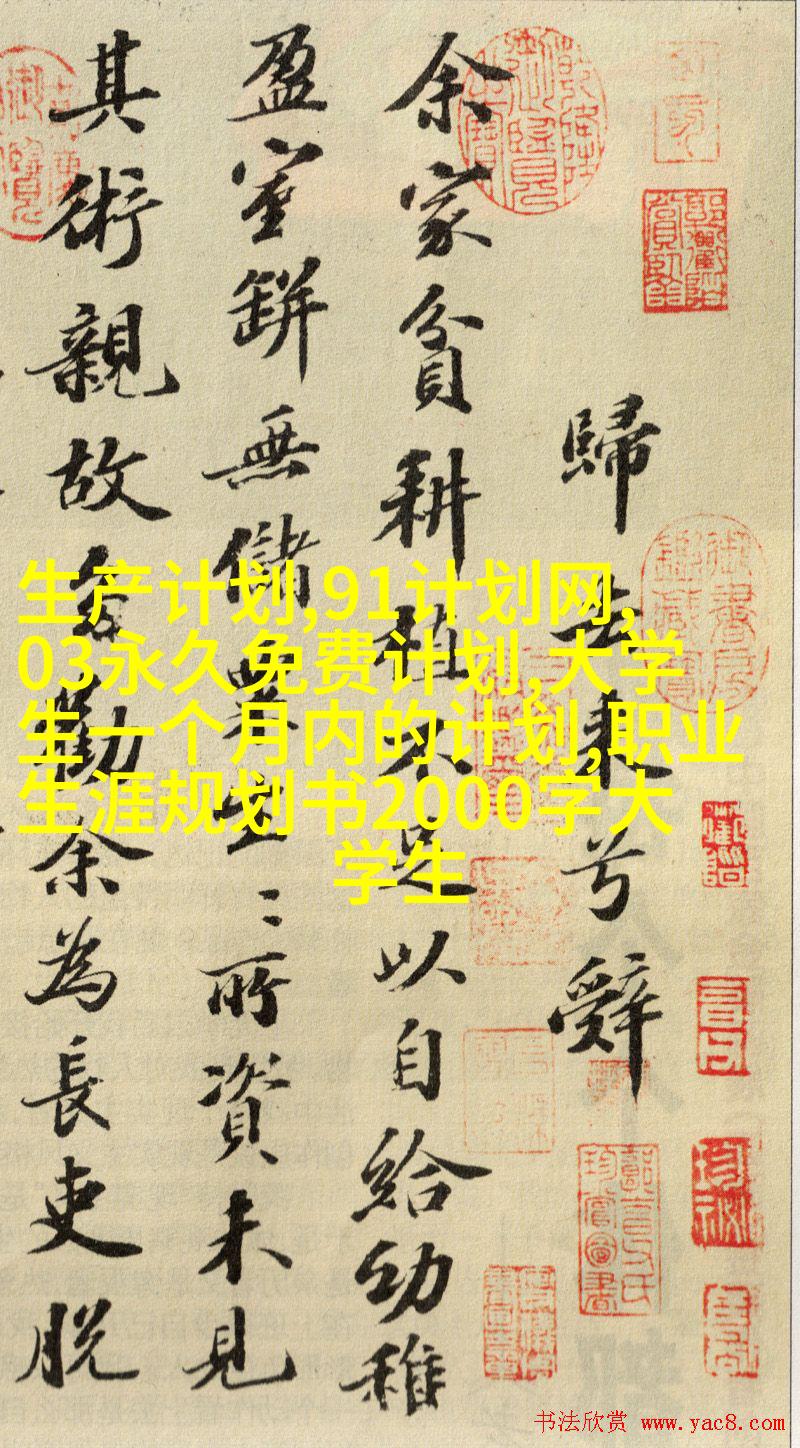 歸去来兮辭
余家貧耕植不足以自給幼稚
盈室缾無儲粟生〻所資未見
其術親故多勸余為長吏脫
生产计划,91计划网,
03永久免费计划,大学
生一个月内的计划,职业
生涯规划书2000字大
学生
书法欣赏 www.yac8.com